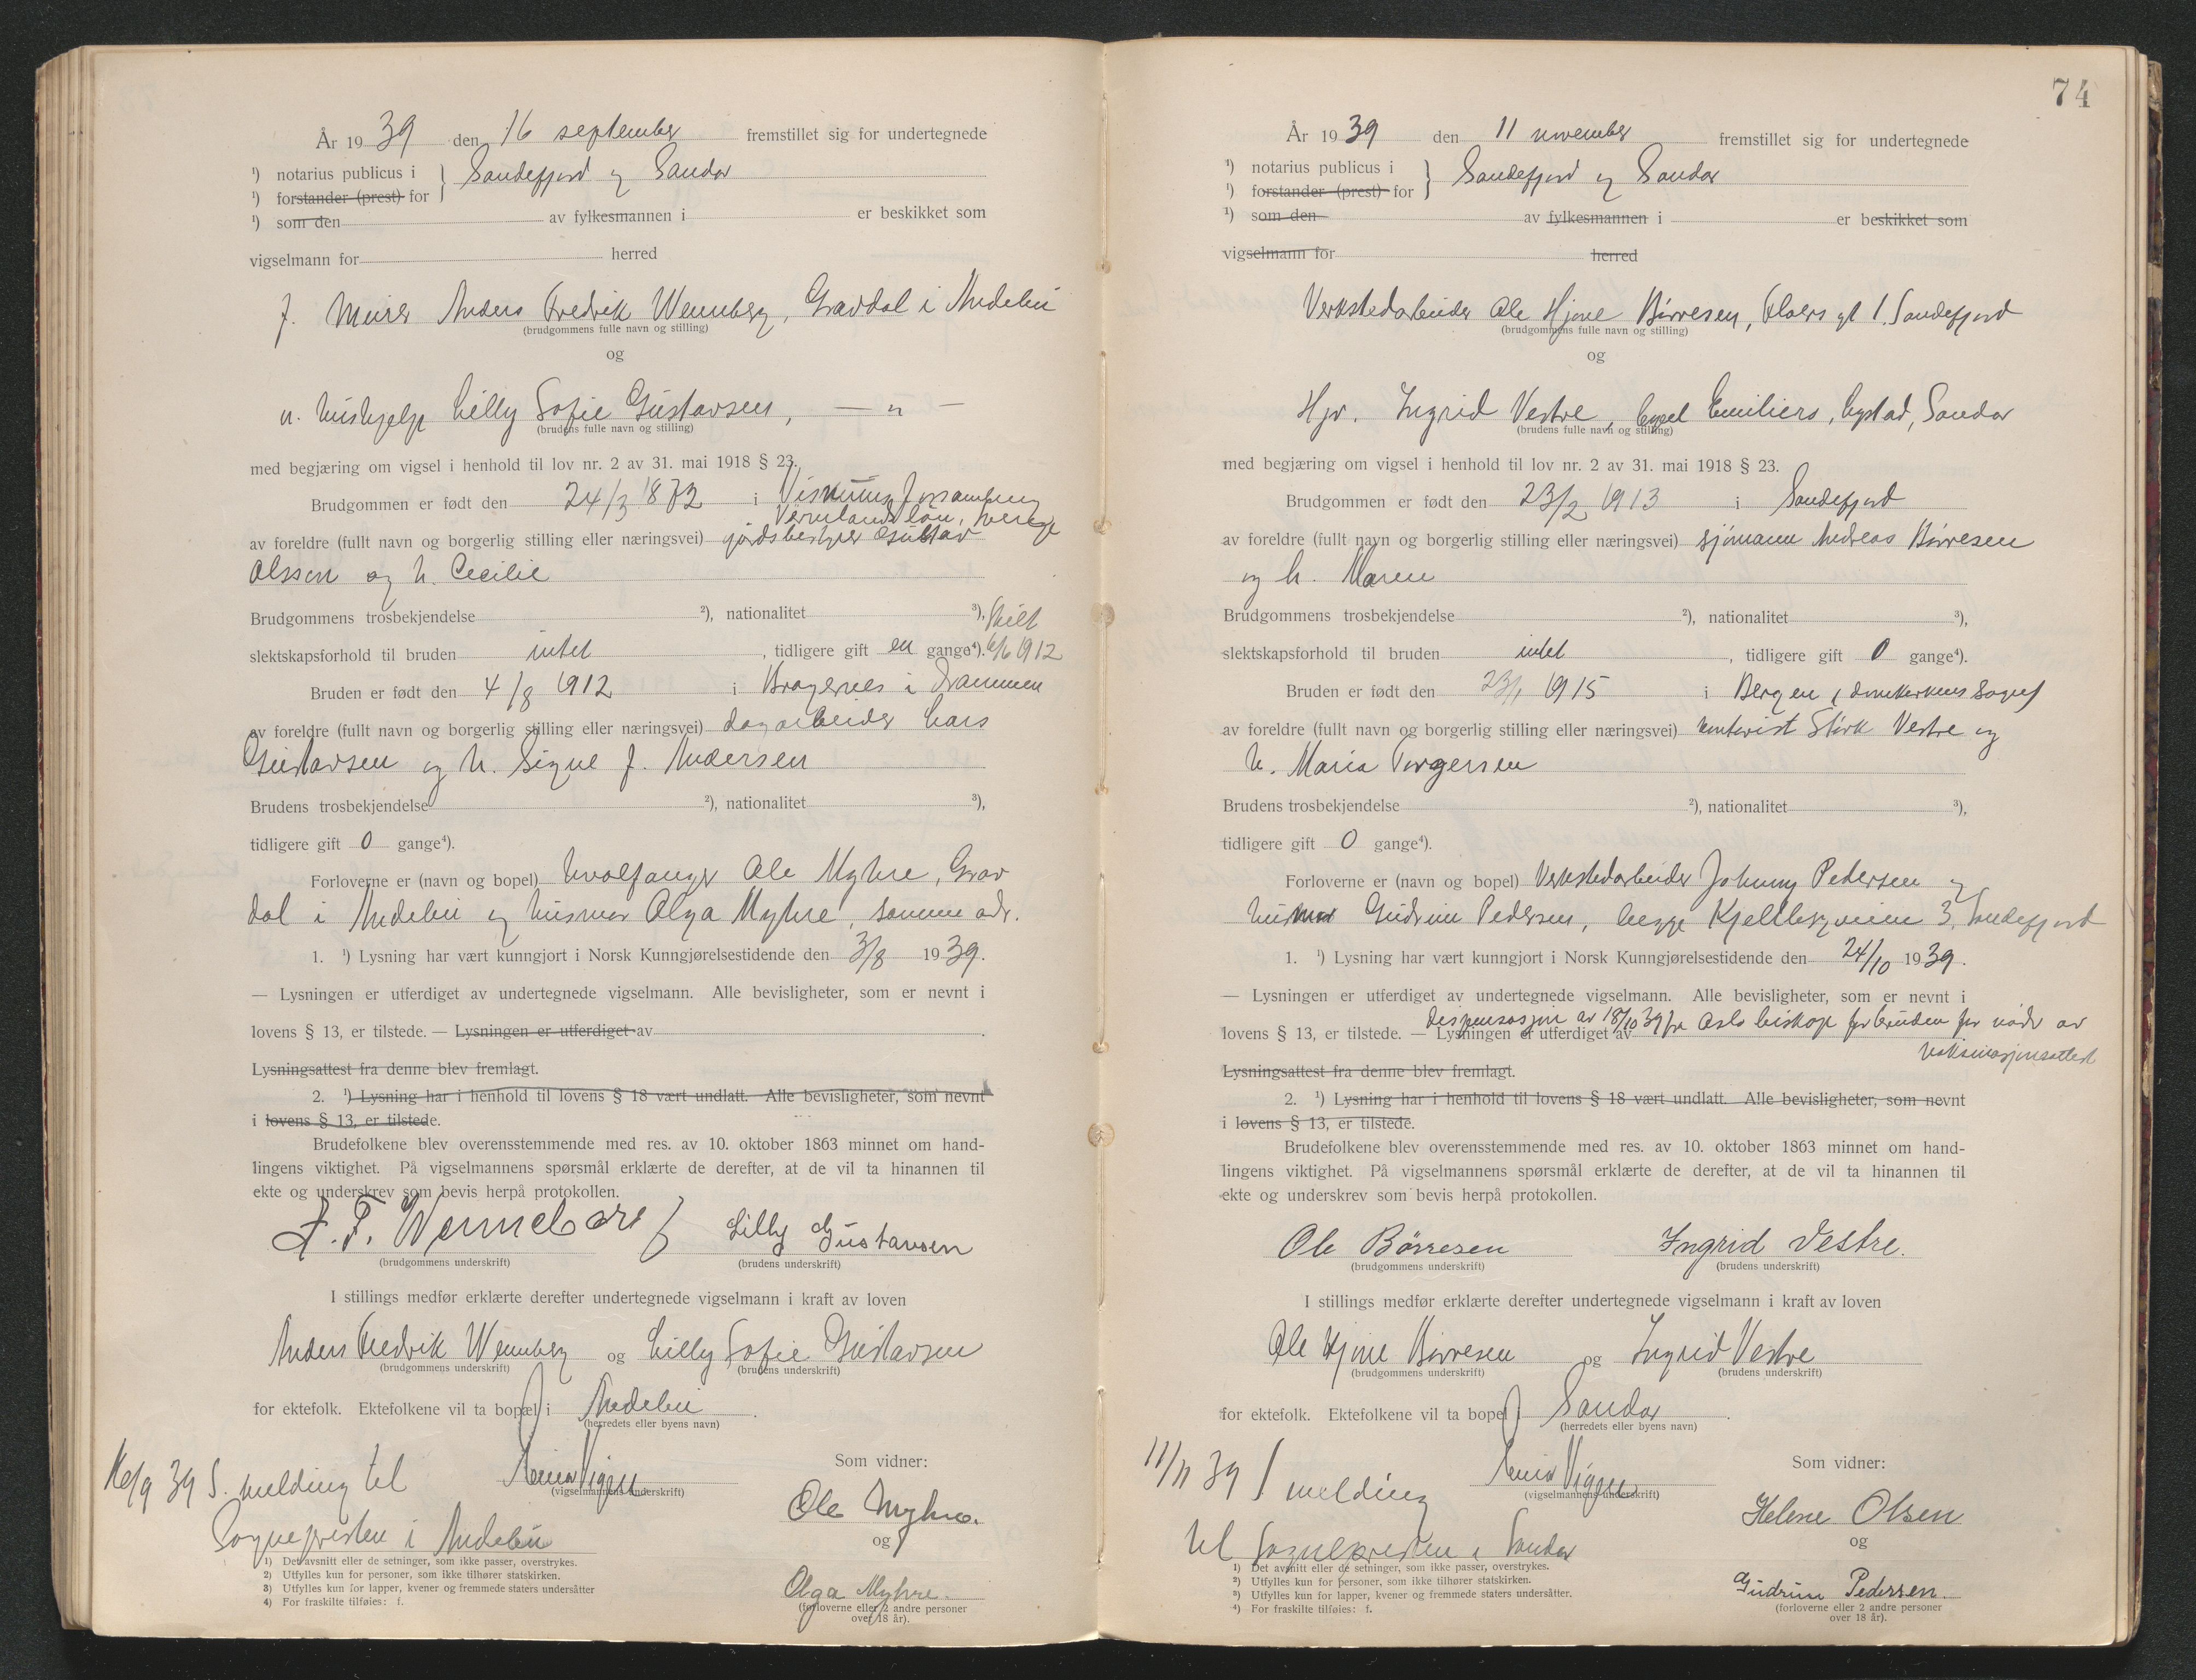 År 1939 den 16 september fremstillet sig for undertegnede
¹) notarius publicus i } Sandefjord og Sandar
¹) forstander (prest) for
¹) som den av fylkesmannen i er beskikket som
vigselmann for herred
f. Murer Anders Fredrik Wennberg, Gravdal i Andebu
(brudgommens fulle navn og stilling)
og
u. hushjelp Lilly Sofie Gustavsen, — " —
(brudens fulle navn og stilling)
med begjæring om vigsel i henhold til lov nr. 2 av 31. mai 1918 § 23.
Brudgommen er født den 24/3 1872 i Visnums församling
Vermlands län, Sverige
av foreldre (fullt navn og borgerlig stilling eller næringsvei) gårdsbestyrer Gustav
Olsson og h. Cecilie
Brudgommens trosbekjendelse ²), nationalitet ³), skilt
slektskapsforhold til bruden intet, tidligere gift en gange⁴). 6/6 1912
Bruden er født den 4/8 1912 i Bragernes i Drammen
av foreldre (fullt navn og borgerlig stilling eller næringsvei) dagarbeider Lars
Gustavsen og h. Signe f. Andersen
Brudens trosbekjendelse ²), nationalitet ³),
tidligere gift 0 gange⁴).
Forloverne er (navn og bopel) hvalfanger Ole Myhre, Grav
dal i Andebu og husmor Olga Myhre, samme adr.
1. ¹) Lysning har vært kunngjort i Norsk Kunngjørelsestidende den 3/8 1939.
— Lysningen er utferdiget av undertegnede vigselmann. Alle bevisligheter, som er nevnt i
lovens § 13, er tilstede. — Lysningen er utferdiget av
Lysningsattest fra denne blev fremlagt.
2. ¹) Lysning har i henhold til lovens § 18 vært undlatt. Alle bevisligheter, som nevnt
i lovens § 13, er tilstede.
Brudefolkene blev overensstemmende med res. av 10. oktober 1863 minnet om hand-
lingens viktighet. På vigselmannens spørsmål erklærte de derefter, at de vil ta hinannen til
ekte og underskrev som bevis herpå protokollen.
A. F. Wenneberg Lilly Gustavsen
(brudgommens underskrift) (brudens underskrift)
I stillings medfør erklærte derefter undertegnede vigselmann i kraft av loven
Anders Fredrik Wennberg og Lilly Sofie Gustavsen
(brudgommens underskrift) (brudens underskrift)
for ektefolk. Ektefolkene vil ta bopæl i Andebu.
(herredets eller byens navn)
16/9 39 S. melding til
(vigselmannens underskrift)
Sognepresten i Andebu
Som vidner:
Ole Myhre.
og
Olga Myhre.
(forloverne eller 2 andre personer
over 18 år).
1) Det avsnitt eller de setninger, som ikke passer, overstrykes.
2) Utfylles kun for personer, som ikke tilhører statskirken.
3) Utfylles kun for lapper, kvener og fremmede staters undersåtter
4) For fraskilte tilføies: f.
74
År 1939 den 11 november fremstillet sig for undertegnede
¹) notarius publicus i } Sandefjord og Sandar
¹) forstander (prest) for
¹) som den av fylkesmannen i er beskikket som
vigselmann for herred
Verkstedarbeider Ole Hjone Børresen, gt 1, Sandefjord
(brudgommens fulle navn og stilling)
og
Hjv. Ingrid Vestre, Emiliero, Bystad, Sandar
(brudens fulle navn og stilling)
med begjæring om vigsel i henhold til lov nr. 2 av 31. mai 1918 § 23.
Brudgommen er født den 23/2 1913 i Sandefjord
av foreldre (fullt navn og borgerlig stilling eller næringsvei) sjømann Andreas Børresen
og h. Maren
Brudgommens trosbekjendelse ²), nationalitet ³),
slektskapsforhold til bruden intet, tidligere gift 0 gange⁴).
Bruden er født den 23/1 1915 i Bergen, domkirkens sogn
av foreldre (fullt navn og borgerlig stilling eller næringsvei) kontorist Størk Vestre og
h. Maria Torgersen
Brudens trosbekjendelse ²), nationalitet ³),
tidligere gift 0 gange⁴).
Forloverne er (navn og bopel) Verkstedarbeider Johnny Pedersen og
husmor Gudrun Pedersen, begge Kjellbergveien 3, Sandefjord
1. ¹) Lysning har vært kunngjort i Norsk Kunngjørelsestidende den 24/10 1939.
— Lysningen er utferdiget av undertegnede vigselmann. Alle bevisligheter, som er nevnt i
dispensasjon av 18/10 39 fra Oslo biskop for bruden for nådv av
lovens § 13, er tilstede. — Lysningen er utferdiget av
vaksinasjonsattest
Lysningsattest fra denne blev fremlagt.
2. ¹) Lysning har i henhold til lovens § 18 vært undlatt. Alle bevisligheter, som nevnt
i lovens § 13, er tilstede.
Brudefolkene blev overensstemmende med res. av 10. oktober 1863 minnet om hand-
lingens viktighet. På vigselmannens spørsmål erklærte de derefter, at de vil ta hinannen til
ekte og underskrev som bevis herpå protokollen.
Ole Børresen Ingrid Vestre.
(brudgommens underskrift) (brudens underskrift)
I stillings medfør erklærte derefter undertegnede vigselmann i kraft av loven
Ole Hjone Børresen og Ingrid Vestre
(brudgommens underskrift) (brudens underskrift)
for ektefolk. Ektefolkene vil ta bopel i Sandar.
(herredets eller byens navn)
11/11 39 S melding
(vigselmannens underskrift)
til Sognepresten i Sandar
Som vidner:
Helene Olsen
og
Gudrun Pedersen.
(forloverne eller 2 andre personer
over 18 år).
1) Det avsnitt eller de setninger, som ikke passer, overstrykes.
2) Utfylles kun for personer, som ikke tilhører statskirken.
3) Utfylles kun for lapper, kvener og fremmede staters undersåtter.
4) For fraskilte tilføies: f.